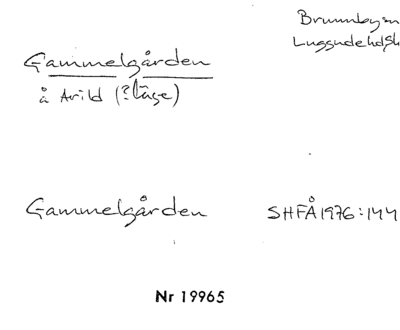 Brunnby sn
Luggude hd Sk
Gammelgården
å Arild (? läge)
Gammelgården SHFÅ 1976:144
Nr 19965